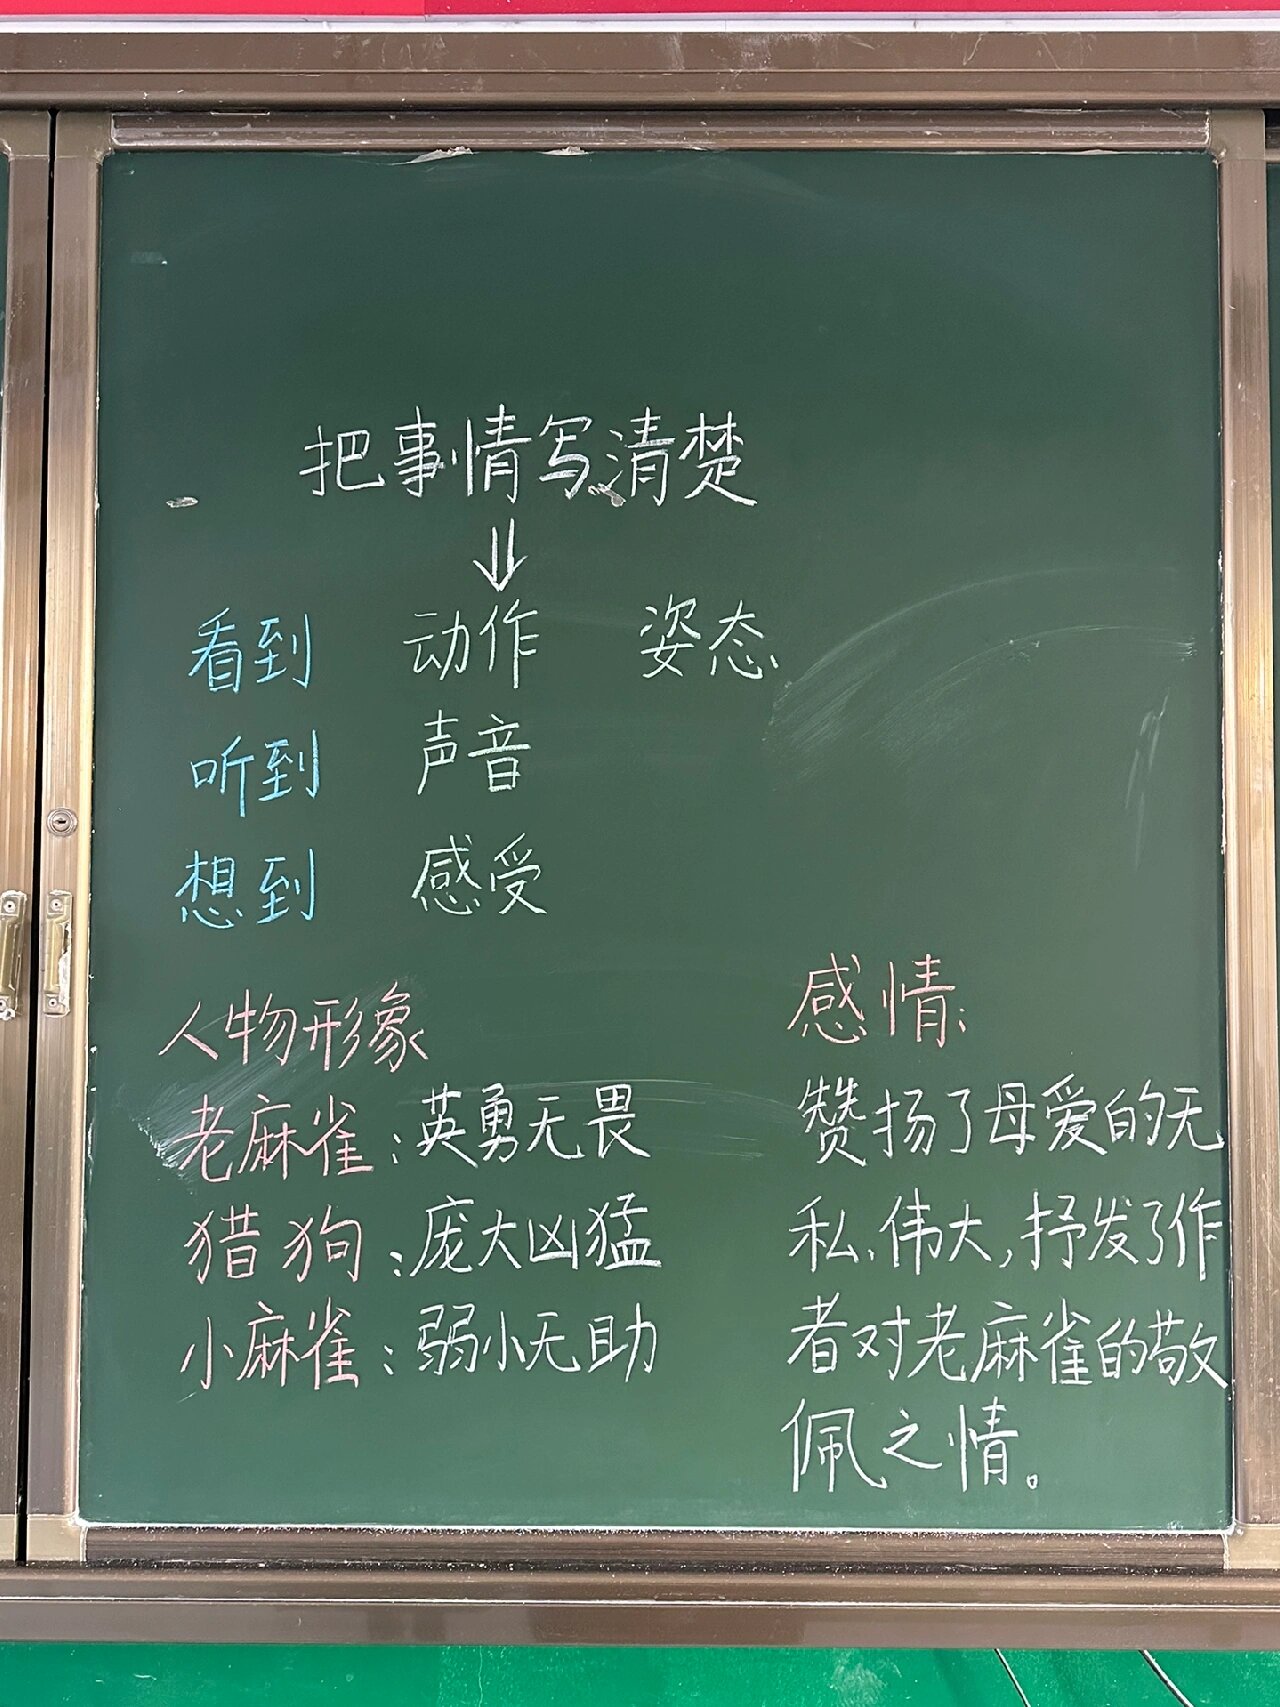 把事情写清楚
看到 动作 姿态
听到 声音
想到 感受
人物形象
老麻雀：英勇无畏
猎狗：庞大凶猛
小麻雀：弱小无助
感情：
赞扬了母爱的无
私、伟大，抒发了作
者对老麻雀的敬
佩之情。